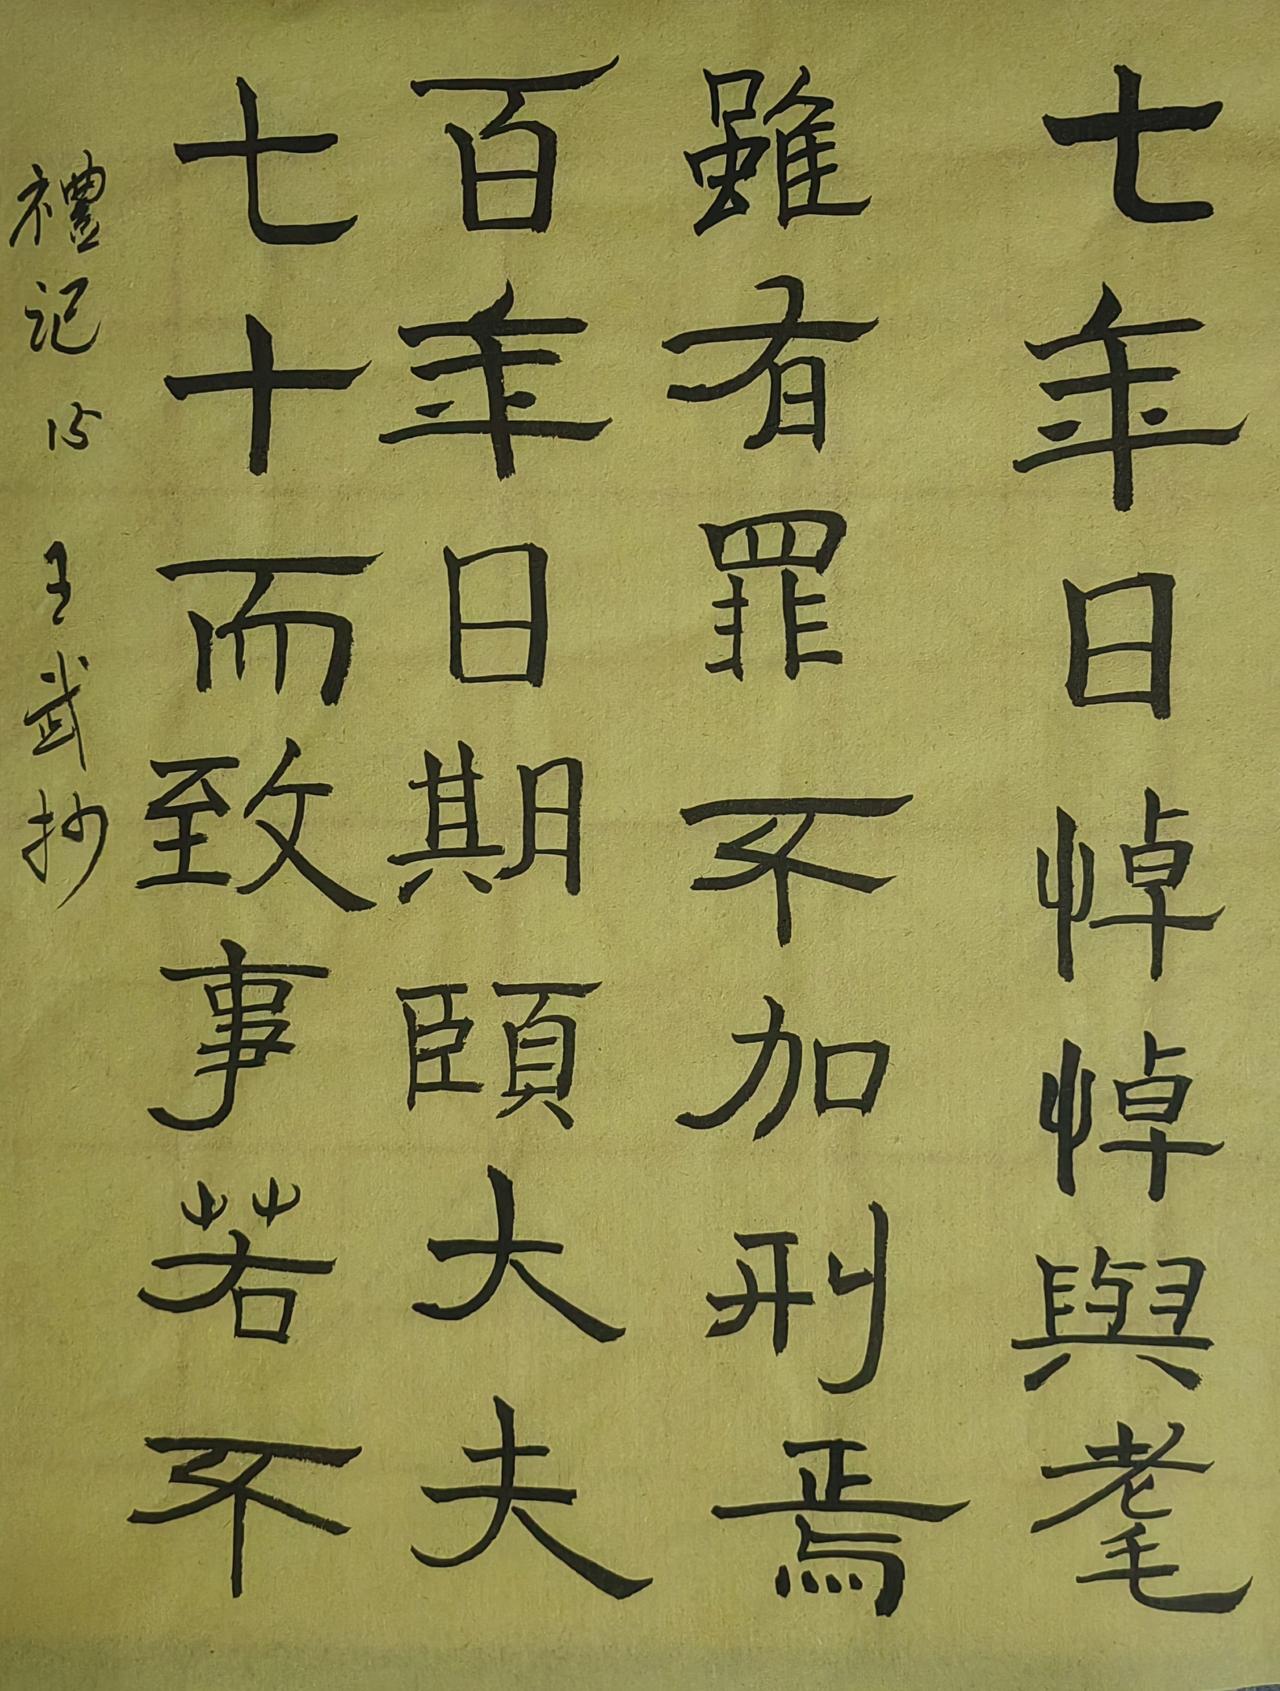 七年日悼悼與耄
雖有罪不加刑焉
百年日期頤大夫
七十而致事若不
禮记 15 王武抄